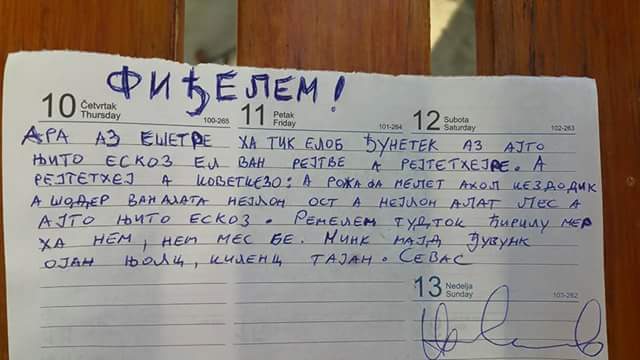 ФИЂЕЛЕМ!
10 Četvrtak Thursday 100-265
11 Petak Friday 101-264
12 Subota Saturday 102-263
АРА АЗ ЕШЕТРЕ ХА ТИК ЕЛОБ ЂУНЕТЕК АЗ АЈТО
ЊИТО ЕСКОЗ ЕЛ ВАН РЕЈТВЕ А РЕЈТЕТХЕЈРЕ. А
РЕЈТЕТХЕЈ А КОВЕТКЕЗО: А РОЖА ФА МЕЛЕТ АХОЛ КЕЗДОДИК
А ШОДЕР ВАН АЛАТА НЕЈЛОН ОСТ А НЕЈЛОН АЛАТ ЛЕС А
АЈТО ЊИТО ЕСКОЗ. РЕМЕЛЕМ ТУДТОК ЋИРИЛУ МЕР
ХА НЕМ, НЕМ МЕС БЕ. МИНК МАЈД ЂУВУНК
ОЈАН ЊОЛЦ, КИЛЕНЦ ТАЈАН. СЕВАС
13 Nedelja Sunday 103-262